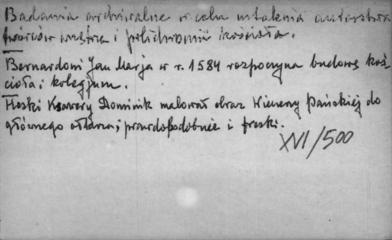 Badania archiwalne w celu ustalenia autorstwa
wnętrza i polichromii kościoła.
Bernardoni Jan Maria w r. 1584 rozpoczyna budowę koś
cioła i kolegjum.
Heski Ksawery Dominik malował obraz Wieczerzy Pańskiej do
głównego ołtarza, prawdopodobnie i freski.
XVI/500